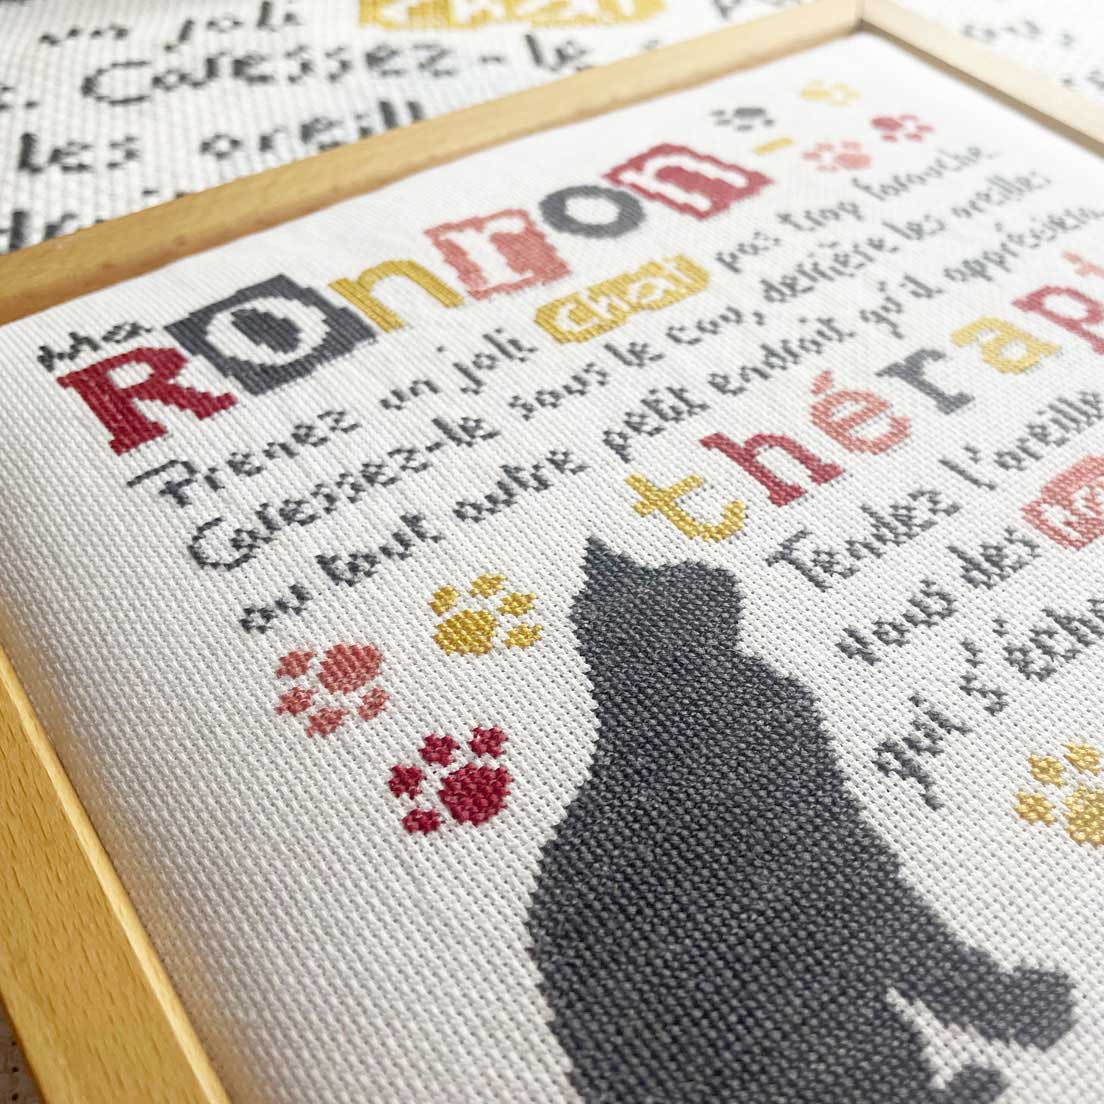 un joli chat
. Caressez-le s
les oreill
Ma
Ronron-
Prenez un joli chat pas trop farouche
Caressez-le sous le cou, derrière les oreilles
ou tout autre petit endroit qu'il appréciera
thérapi
Tendez l'oreille
vous des
qui s'écha